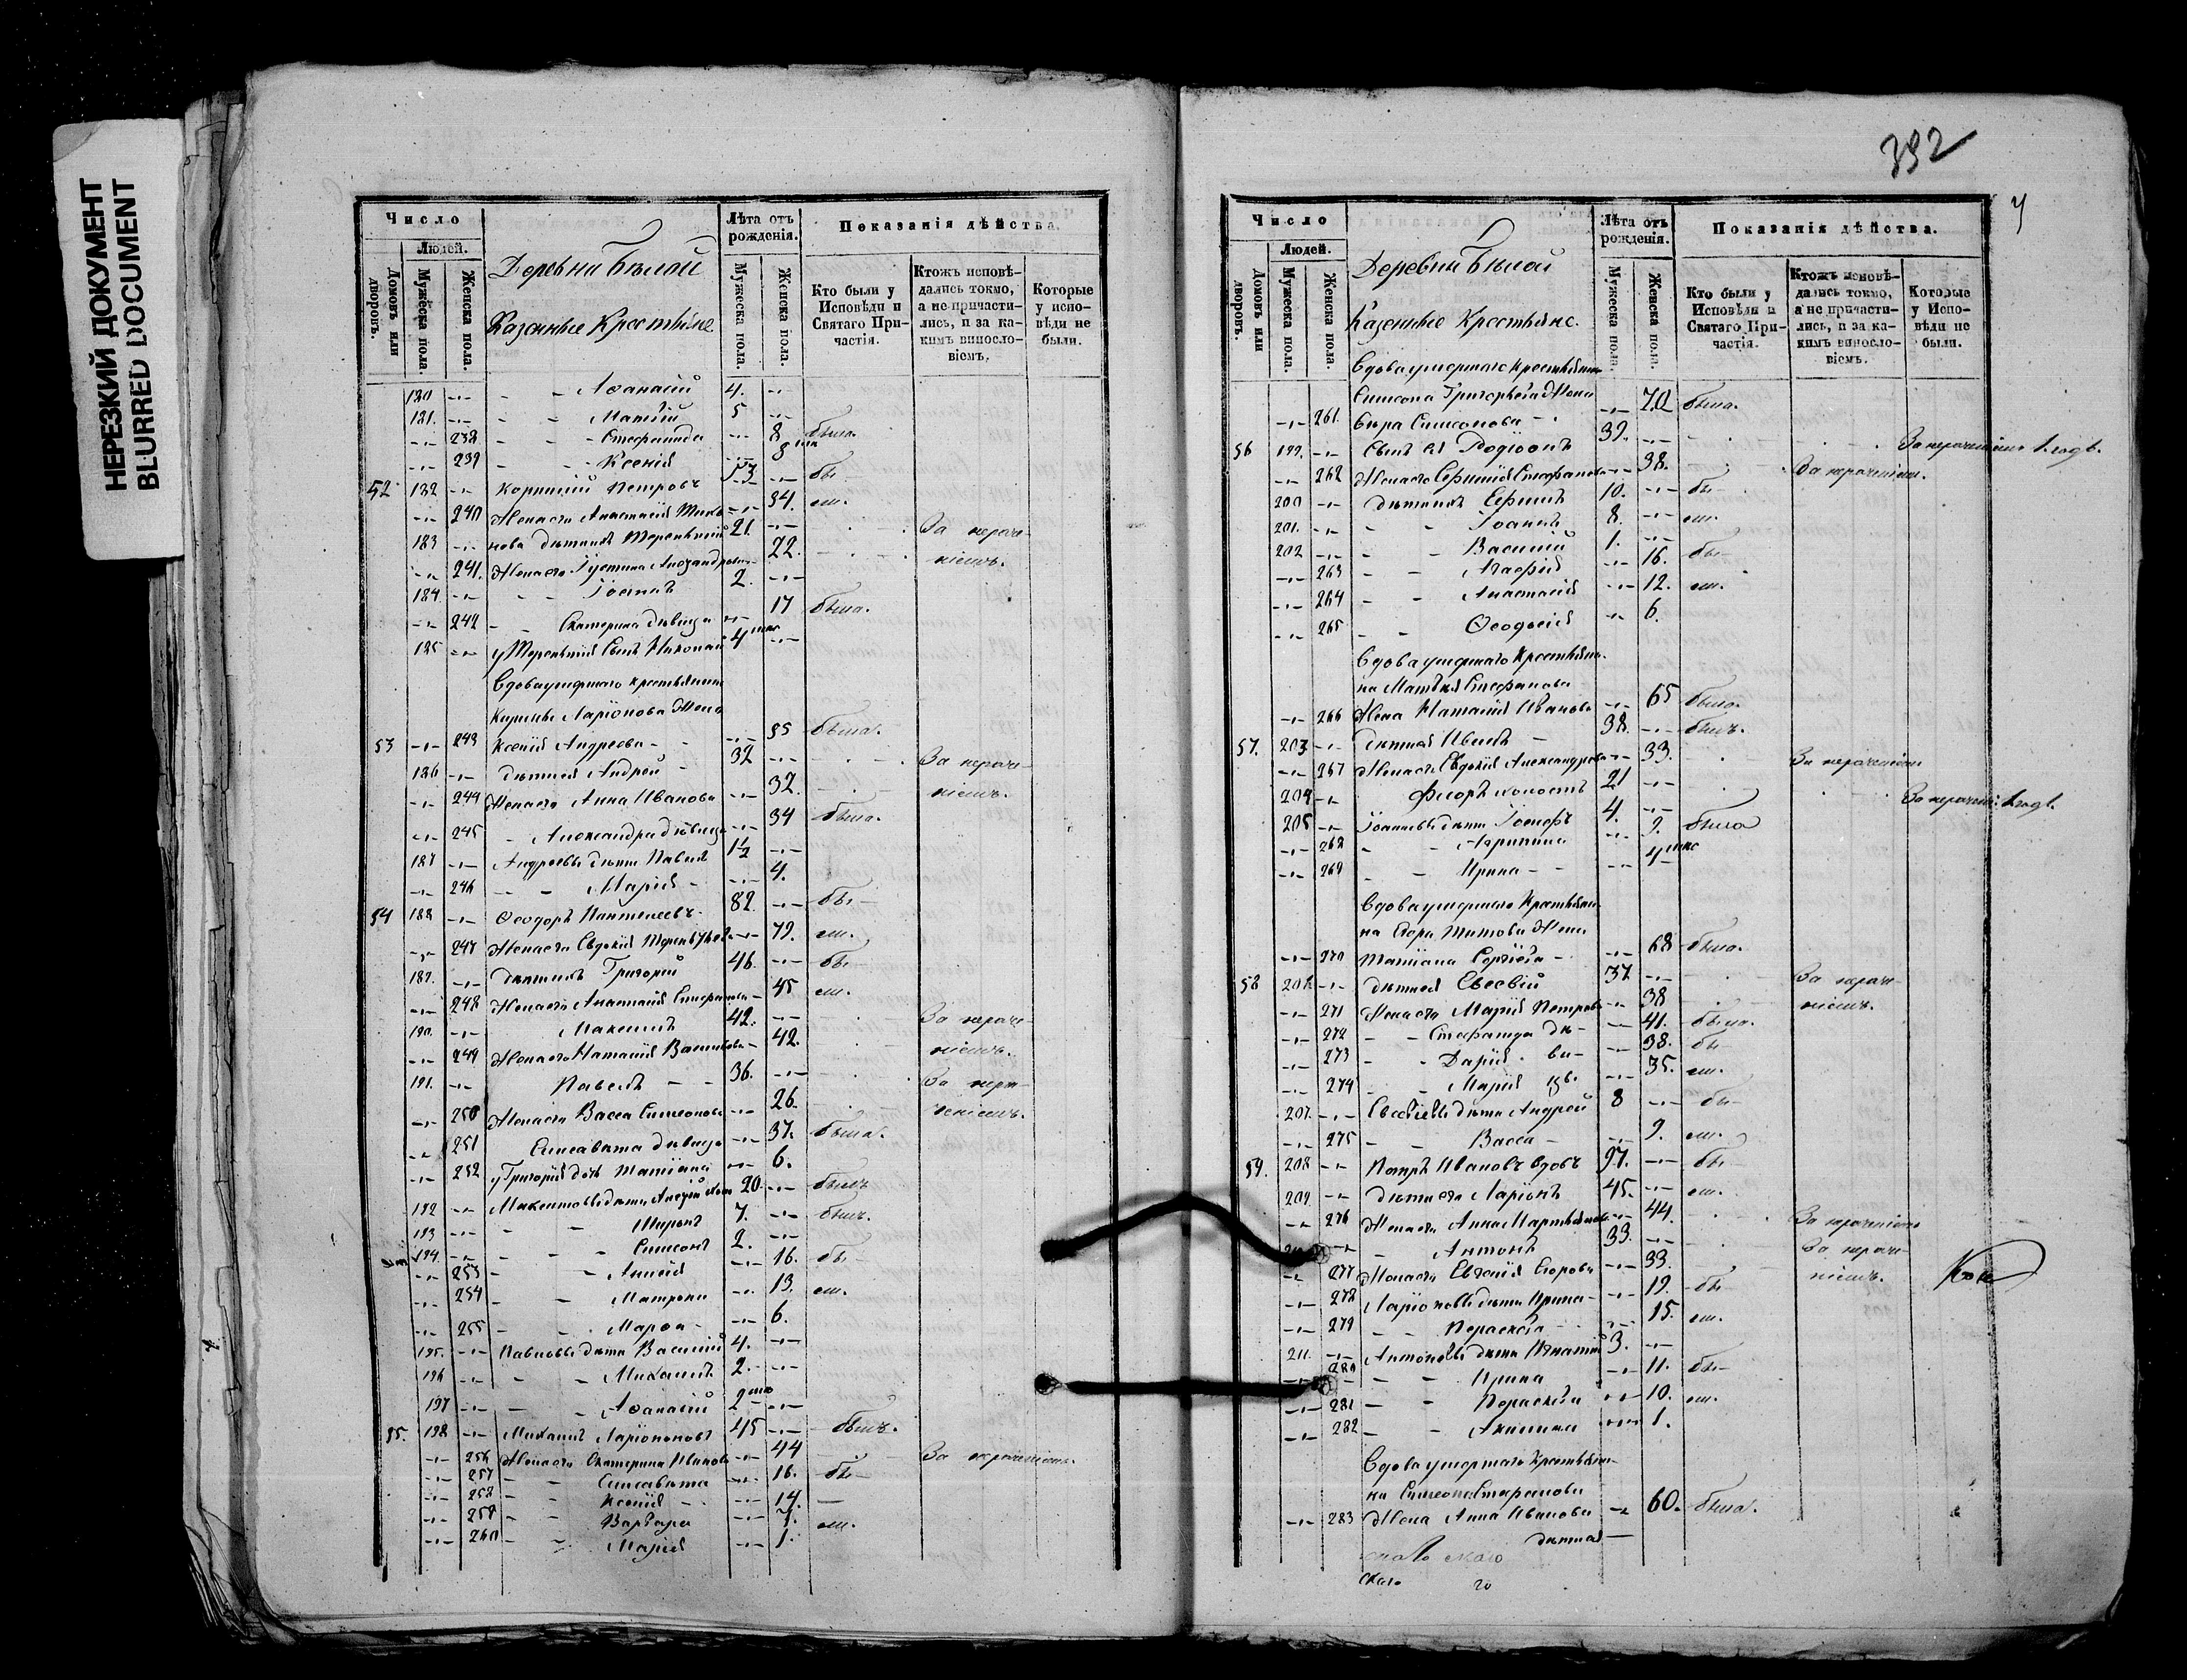 НЕРЕЗКИЙ ДОКУМЕНТ
BLURRED DOCUMENT
Число
Людей.
Домовъ или дворовъ.
Мужеска пола.
Женска пола.
Деревни Бѣлой
Казенные Крестьяне
Лѣта отъ рожденія.
Мужеска пола.
Женска пола.
Показанія дѣйства.
Кто были у Исповѣди и Святаго При-частія.
Ктожъ исповѣ-дались токмо, а не причасти-лись, и за ка-кимъ винослo-віемъ.
Которые у испо-вѣди не были.
180 Аѳанасій 4.
181. Матѳій 5
238 Стефанида 8 была.
239 Ксенія
52 182 Корнилій Петровъ 53 бы-
240 Жена его Анастасія 34. ли.
183 нова дѣти ихъ Терентій 21. За нераче-
241. Жена его Іустина Александрова 22. ніемъ.
184 Іоаннъ 2.
242 Екатерина дѣвица 17 была.
185 у Терентія сынъ Николай 4 мѣс
Вдова умершаго крестьянина
Кирилы Ларіонова Жена
53 243 Ксенія Андреева 55 была.
186 дѣти ея Андрей 32 За нераче-
244 Жена его Анна Иванова 32. ніемъ.
245 Александра дѣвица 34 была.
187 Андреевы дѣти Павелъ 1½
246 Марія 4.
54 188 Ѳеодоръ Пантелеевъ 82 бы-
247 Жена его Евдокія 79. ли.
189. дѣти ихъ Григорій 46. бы-
248 Жена его Анастасія Стефанова 45 ли.
190. Максимъ 42. За нераче-
249 Жена его Наталія Василькова 42. ніемъ.
191. Павелъ 36. За нера-
250 Жена его Васса Симеонова 26. ченіемъ.
251 Елисавета дѣвица 37. была.
252 у Григорія дочь Татіана 6.
192 Максимовы дѣти Алексѣй 20. былъ
193 Миронъ 7. былъ.
194. Симеонъ 2.
253 16. бы-
254 Матрона 13. ли.
255 Марѳа 6.
195. Павловы дѣти Василій 4.
196 Михаилъ 2.
197 Аѳанасій 2
55. 198 Михаилъ Ларіоновъ 45 былъ.
256 Жена его Екатерина Иванова 44 За нераченіемъ.
257 Елисавета 16. бы-
258 Ксенія 14.
259 Варвара 7. ли.
260 Марія 1.
392
Число
Людей.
Домовъ или дворовъ.
Мужеска пола.
Женска пола.
Деревни Бѣлой
Казенные Крестьяне.
Лѣта отъ рожденія.
Мужеска пола.
Женска пола.
Показанія дѣйства.
Кто были у Исповѣди и Святаго При-частія.
Ктожъ исповѣ-дались токмо, а не причасти-лись, и за ка-кимъ винослo-віемъ.
Которые у Испо-вѣди не были.
Вдова умершаго крестьянина
Симеона Григорьева Жена
261. Вѣра Симеонова 70 была.
56 199. сынъ ея Родіонъ 39. За нераченіемъ 1 годъ.
262 Жена его Стефанова 38. За нераченіем.
200 дѣти ихъ Ефимъ 10. бы-
201. Іоаннъ 8. ли.
202 Василій 1.
263 Агафія 16. бы-
264 Анастасія 12. ли.
265 Ѳеодосія 6.
Вдова умершаго Крестьяни-
на Матѳія Стефанова
266 Жена Наталія Иванова 65 была.
57. 203 дѣти ея Иванъ 38. былъ.
267 Жена его Евдокія Александрова 33. За нераченіем
204 Ѳеоръ холостъ 21 За нерачені. 1 годъ.
205 Іоанновы дѣти Іосифъ 4.
268 Агрипина 9. была
269 Ирина 4 мѣс
Вдова умершаго Крестьяни-
на Егора Титова Жена
270 Татіана Сергіева 68 была.
58 206 дѣти ея Евсевій 37. За нераче-
271 Жена его Марія Петрова 38 ніемъ.
272 Стефанида дѣ- 41. была.
273 Дарія ви- 38. бы-
274 Марія цы. 35. ли.
207. Евсевіевы дѣти Андрей 8 бы-
275 Васса 9. ли.
59. 208 Петръ Ивановъ вдовъ 97. бы-
209 дѣти его Ларіонъ 45. ли.
276 Жена его Анна Мартынова 44. За нераченіемъ
210 Антонъ 33. За нераче-
277 Жена его Евгенія Егорова 33. ніемъ.
278 Ларіоновы дѣти Ирина 19. бы-
279 Параскева 15. ли.
211. Антоновы дѣти Игнатій 3.
280 Ирина 11. бы-
281 Параскева 10. ли.
282 Акилина 1.
Вдова умершаго Крестьяни-
на Симеона Стефанова
283 Жена Анна Иванова 60. была.
дѣти ея